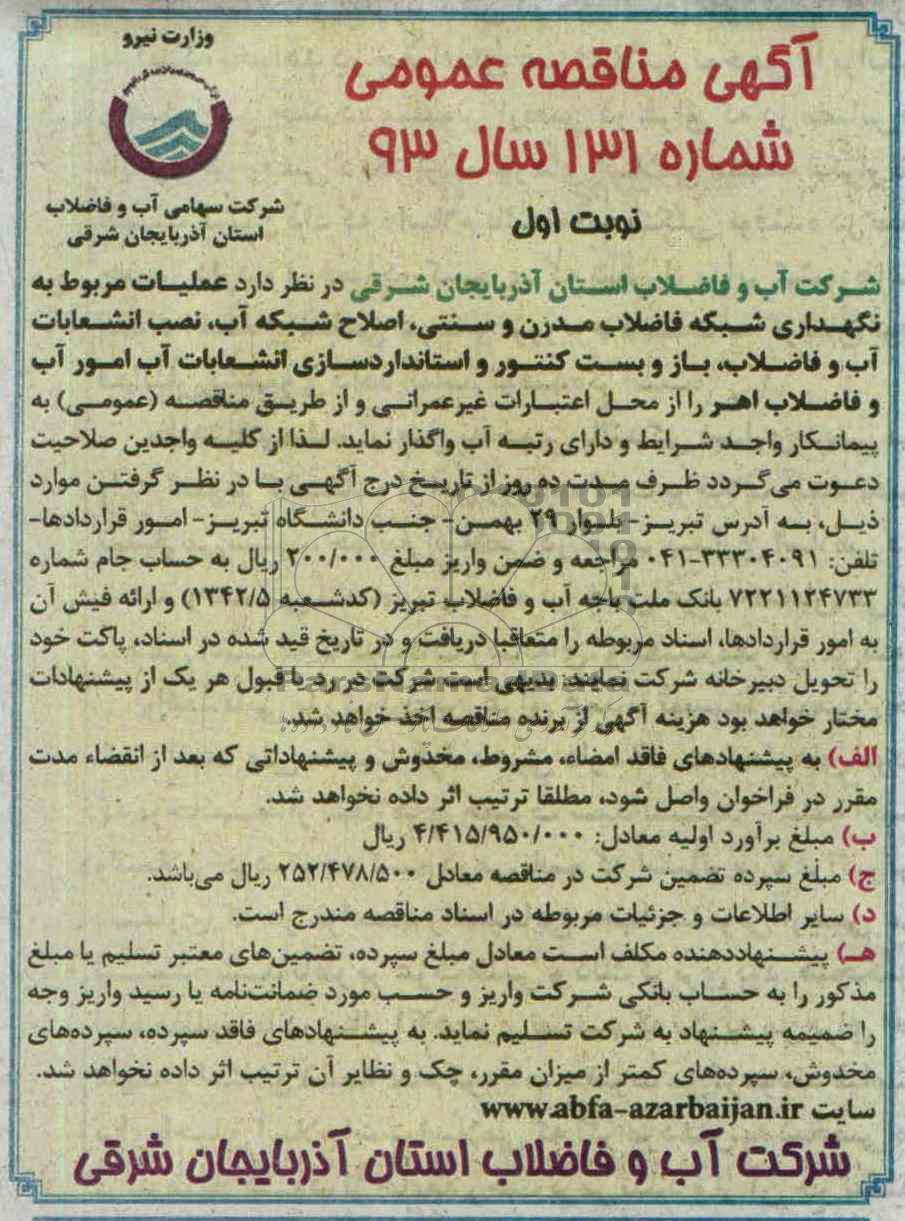 وزارت نیرو
شرکت سهامی آب و فاضلاب
استان آذربایجان شرقی
آگهی مناقصه عمومی
شماره ۱۳۱ سال ۹۳
نوبت اول
شرکت آب و فاضلاب استان آذربایجان شرقی در نظر دارد عملیات مربوط به
نگهداری شبکه فاضلاب مدرن و سنتی، اصلاح شبکه آب، نصب انشعابات
آب و فاضلاب، باز و بست کنتور و استانداردسازی انشعابات آب امور آب
و فاضلاب اهر را از محل اعتبارات غیرعمرانی و از طریق مناقصه (عمومی) به
پیمانکار واجد شرایط و دارای رتبه آب واگذار نماید. لذا از کلیه واجدین صلاحیت
دعوت می‌گردد ظرف مدت ده روز از تاریخ درج آگهی با در نظر گرفتن موارد
ذیل، به آدرس تبریز- بلوار ۲۹ بهمن- جنب دانشگاه تبریز- امور قراردادها-
تلفن: ۳۳۳۰۴۰۹۱-۰۴۱ مراجعه و ضمن واریز مبلغ ۲۰۰/۰۰۰ ریال به حساب جام شماره
۷۲۲۱۱۲۴۷۳۳ بانک ملت باجه آب و فاضلاب تبریز (کدشعبه ۱۳۴۲/۵) و ارائه فیش آن
به امور قراردادها، اسناد مربوطه را متعاقبا دریافت و در تاریخ قید شده در اسناد، پاکت خود
را تحویل دبیرخانه شرکت نمایند. بدیهی است شرکت در رد یا قبول هر یک از پیشنهادات
مختار خواهد بود هزینه آگهی از برنده مناقصه اخذ خواهد شد.
الف) به پیشنهادهای فاقد امضاء، مشروط، مخدوش و پیشنهاداتی که بعد از انقضاء مدت
مقرر در فراخوان واصل شود، مطلقا ترتیب اثر داده نخواهد شد.
ب) مبلغ برآورد اولیه معادل: ۴/۴۱۵/۹۵۰/۰۰۰ ریال
ج) مبلغ سپرده تضمین شرکت در مناقصه معادل ۲۵۲/۴۷۸/۵۰۰ ریال می‌باشد.
د) سایر اطلاعات و جزئیات مربوطه در اسناد مناقصه مندرج است.
هـ) پیشنهاددهنده مکلف است معادل مبلغ سپرده، تضمین‌های معتبر تسلیم یا مبلغ
مذکور را به حساب بانکی شرکت واریز و حسب مورد ضمانت‌نامه یا رسید واریز وجه
را ضمیمه پیشنهاد به شرکت تسلیم نماید. به پیشنهادهای فاقد سپرده، سپرده‌های
مخدوش، سپرده‌های کمتر از میزان مقرر، چک و نظایر آن ترتیب اثر داده نخواهد شد.
سایت www.abfa-azarbaijan.ir
شرکت آب و فاضلاب استان آذربایجان شرقی